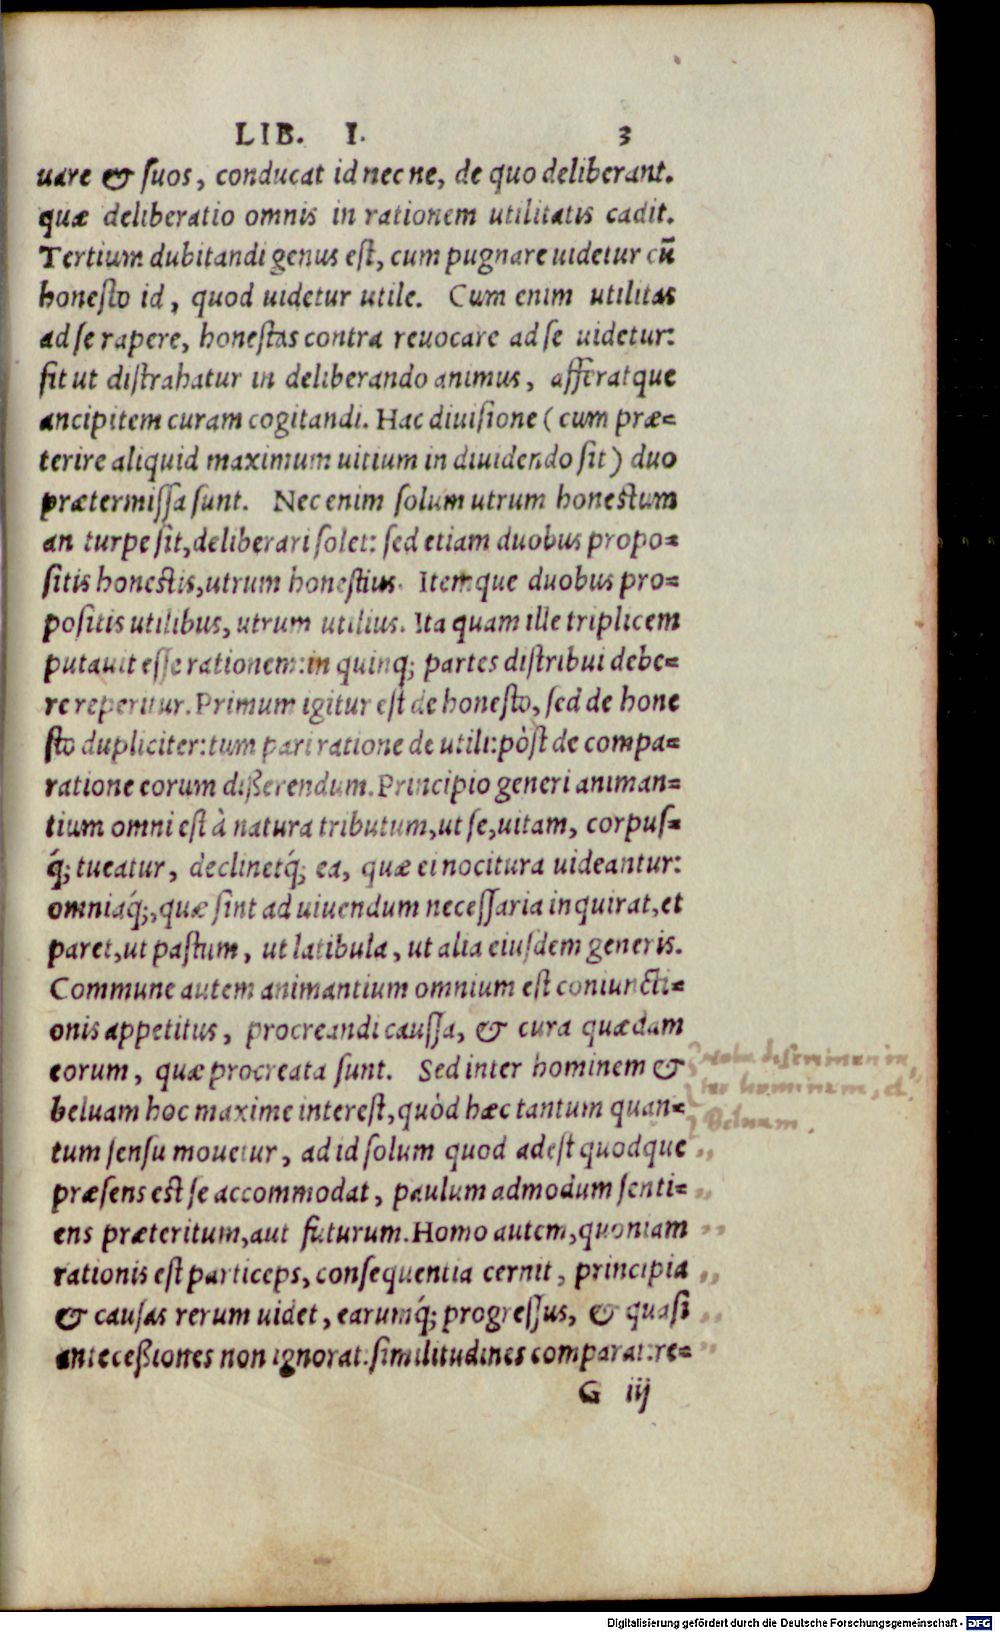 LIB. I. 3
uare & ſuos, conducat id nec ne, de quo deliberant.
quæ deliberatio omnis in rationem utilitatis cadit.
Tertium dubitandi genus eſt, cum pugnare uidetur cū
honeſto id, quod uidetur utile. Cum enim utilitas
ad ſe rapere, honeſtas contra reuocare ad ſe uidetur:
fit ut diſtrahatur in deliberando animus, afferatque
ancipitem curam cogitandi. Hac diuiſione (cum præ=
terire aliquid maximum uitium in diuidendo ſit) duo
prætermiſſa ſunt. Nec enim ſolum utrum honeſtum
an turpe ſit, deliberari ſolet: ſed etiam duobus propo=
ſitis honeſtis, utrum honeſtius. Itemque duobus pro=
poſitis utilibus, utrum utilius. Ita quam ille triplicem
putauit eſſe rationem: in quinq; partes diſtribui debe=
re reperitur. Primum igitur eſt de honeſto, ſed de hone
ſto dupliciter: tum pari ratione de utili: pòſt de compa=
ratione eorum dißerendum. Principio generi animan=
tium omni eſt à natura tributum, ut ſe, uitam, corpuſ=
q́; tueatur, declinetq́; ea, quæ ei nocitura uideantur:
omniaq́;, quæ ſint ad uiuendum neceſſaria inquirat, et
paret, ut paſtum, ut latibula, ut alia eiuſdem generis.
Commune autem animantium omnium eſt coniuncti=
onis appetitus, procreandi cauſſa, & cura quædam
eorum, quæ procreata ſunt. Sed inter hominem &
beluam hoc maxime intereſt, quòd hæc tantum quan=
tum ſenſu mouetur, ad id ſolum quod adeſt quodque
præſens eſt ſe accommodat, paulum admodum ſenti=
ens præteritum, aut futurum. Homo autem, quoniam
rationis eſt particeps, conſequentia cernit, principia
& cauſas rerum uidet, earumq́; progreſſus, & quaſi
anteceßiones non ignorat: ſimilitudines comparat: re=
G iij
Nota discrimen in
ter hominem, et
Beluam.
Digitalisierung gefördert durch die Deutsche Forschungsgemeinschaft - DFG